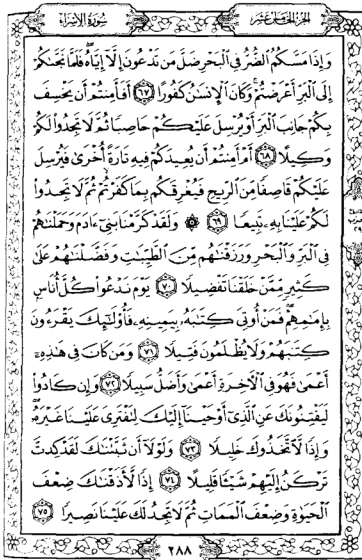 سُورَةُ الإِسْرَاءِ
الجُزْءُ الخَامِسَ عَشَرَ
وَإِذَا مَسَّكُمُ ٱلضُّرُّ فِي ٱلْبَحْرِ ضَلَّ مَن تَدْعُونَ إِلَّآ إِيَّاهُ فَلَمَّا نَجَّىٰكُمْ
إِلَى ٱلْبَرِّ أَعْرَضْتُمْ وَكَانَ ٱلْإِنسَٰنُ كَفُورًا ٦٧ أَفَأَمِنتُمْ أَن يَخْسِفَ
بِكُمْ جَانِبَ ٱلْبَرِّ أَوْ يُرْسِلَ عَلَيْكُمْ حَاصِبًا ثُمَّ لَا تَجِدُوا۟ لَكُمْ
وَكِيلًا ٦٨ أَمْ أَمِنتُمْ أَن يُعِيدَكُمْ فِيهِ تَارَةً أُخْرَىٰ فَيُرْسِلَ
عَلَيْكُمْ قَاصِفًا مِّنَ ٱلرِّيحِ فَيُغْرِقَكُم بِمَا كَفَرْتُمْ ثُمَّ لَا تَجِدُوا۟
لَكُمْ عَلَيْنَا بِهِۦ تَبِيعًا ٦٩ ۞ وَلَقَدْ كَرَّمْنَا بَنِىٓ ءَادَمَ وَحَمَلْنَٰهُمْ
فِي ٱلْبَرِّ وَٱلْبَحْرِ وَرَزَقْنَٰهُم مِّنَ ٱلطَّيِّبَٰتِ وَفَضَّلْنَٰهُمْ عَلَىٰ
كَثِيرٍ مِّمَّنْ خَلَقْنَا تَفْضِيلًا ٧٠ يَوْمَ نَدْعُوا۟ كُلَّ أُنَاسٍۭ
بِإِمَٰمِهِمْ فَمَنْ أُوتِىَ كِتَٰبَهُۥ بِيَمِينِهِۦ فَأُو۟لَٰٓئِكَ يَقْرَءُونَ
كِتَٰبَهُمْ وَلَا يُظْلَمُونَ فَتِيلًا ٧١ وَمَن كَانَ فِي هَٰذِهِۦٓ
أَعْمَىٰ فَهُوَ فِي ٱلْءَاخِرَةِ أَعْمَىٰ وَأَضَلُّ سَبِيلًا ٧٢ وَإِن كَادُوا۟
لَيَفْتِنُونَكَ عَنِ ٱلَّذِىٓ أَوْحَيْنَآ إِلَيْكَ لِتَفْتَرِىَ عَلَيْنَا غَيْرَهُۥ
وَإِذًا لَّٱتَّخَذُوكَ خَلِيلًا ٧٣ وَلَوْلَآ أَن ثَبَّتْنَٰكَ لَقَدْ كِدتَّ
تَرْكَنُ إِلَيْهِمْ شَيْـًٔا قَلِيلًا ٧٤ إِذًا لَّأَذَقْنَٰكَ ضِعْفَ
ٱلْحَيَوٰةِ وَضِعْفَ ٱلْمَمَاتِ ثُمَّ لَا تَجِدُ لَكَ عَلَيْنَا نَصِيرًا ٧٥
٢٨٨